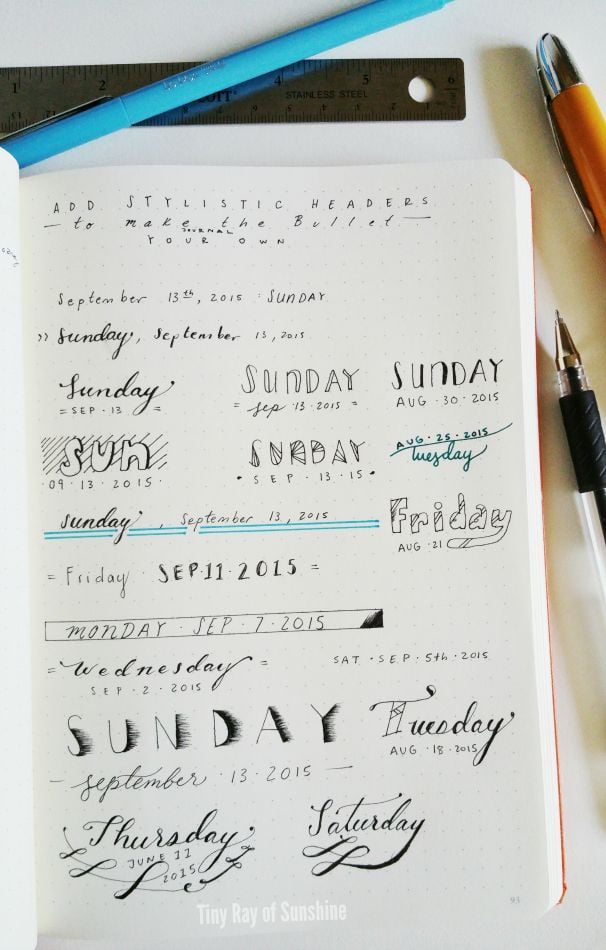 1 2 4 5 6
STAINLESS STEEL
ADD STYLISTIC HEADERS
— to make the Bullet —
JOURNAL
YOUR OWN
September 13th, 2015 · SUNDAY
>> Sunday, September 13, 2015
Sunday
= SEP · 13 =
SUNDAY
= Sep · 13 · 2015 =
SUNDAY
AUG · 30 · 2015
SUN
· 09 · 13 · 2015 ·
SUNDAY
• SEP · 13 · 15 •
AUG · 25 · 2015
Tuesday
sunday, September 13, 2015
Friday
AUG · 21
= Friday · SEP · 11 · 2015 =
MONDAY · SEP · 7 · 2015
= Wednesday =
SEP · 2 · 2015
SAT · SEP · 5th · 2015
SUNDAY
— september · 13 · 2015 —
Tuesday
AUG · 18 · 2015
Thursday
JUNE 11
2015
Saturday
93
Tiny Ray of Sunshine